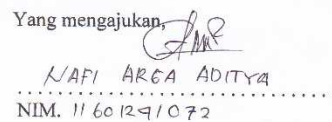 Yang mengajukan,
NAFI ARGA ADITYA
NIM. 11601291072